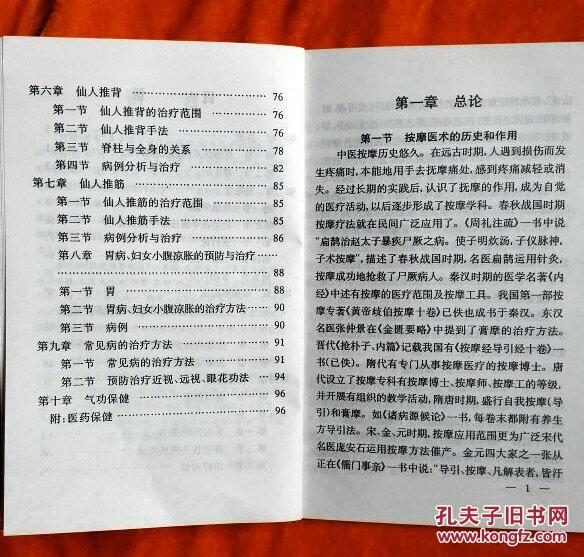 第六章 仙人推背 ………… 76
第一节 仙人推背的治疗范围 ………… 76
第二节 仙人推背手法 ………… 76
第三节 脊柱与全身的关系 ………… 78
第四节 病例分析与治疗 ………… 82
第七章 仙人推筋 ………… 85
第一节 仙人推筋的治疗范围 ………… 85
第二节 仙人推筋手法 ………… 85
第三节 病例分析与治疗 ………… 86
第八章 胃病、妇女小腹凉胀的预防与治疗 ……
………… 88
第一节 胃 ………… 88
第二节 胃病、妇女小腹凉胀的治疗方法 …… 90
第三节 病例 ………… 90
第九章 常见病的治疗方法 ………… 91
第一节 常见病的治疗方法 ………… 91
第二节 预防治疗近视、远视、眼花功法 …… 94
第十章 气功保健 ………… 96
附:医药保健 ………… 96
第一章 总论
第一节 按摩医术的历史和作用
中医按摩历史悠久。在远古时期,人遇到损伤而发
生疼痛时,本能地用手去抚摩痛处,感到疼痛减轻或消
失。经过长期的实践后,认识了抚摩的作用,成为自觉
的医疗活动,以后逐步形成了按摩学科。春秋战国时期
按摩疗法就在民间广泛应用了。《周礼注疏》一书中说
“扁鹊治赵太子暴疾尸厥之病。使子明炊汤,子仪脉神,
子术按摩”,描述了春秋战国时期,名医扁鹊运用针灸、
按摩成功地抢救了尸厥病人。秦汉时期的医学名著《内
经》中述有按摩的医疗范围及按摩工具。我国第一部按
摩专著《黄帝歧伯按摩十卷》已佚也成书于秦汉。东汉
名医张仲景在《金匮要略》中提到了膏摩的治疗方法。
晋代《抢朴子、内篇》记载我国有《按摩经导引经十卷》一
书(已佚)。隋代有专门从事按摩医疗的按摩博士。唐
代设立了按摩专科有按摩博士、按摩师、按摩工的等级,
并开展有组织的教学活动,隋唐时期,盛行自我按摩(导
引)和膏摩。如《诸病源候论》一书,每卷末都附有养生
方导引法。宋、金、元时期,按摩应用范围更为广泛宋代
名医庞安石运用按摩方法催产。金元四大家之一张从
正在《儒门事亲》一书中说:“导引、按摩、凡解表者,皆汗
— 1 —
孔夫子旧书网
www.kongfz.com